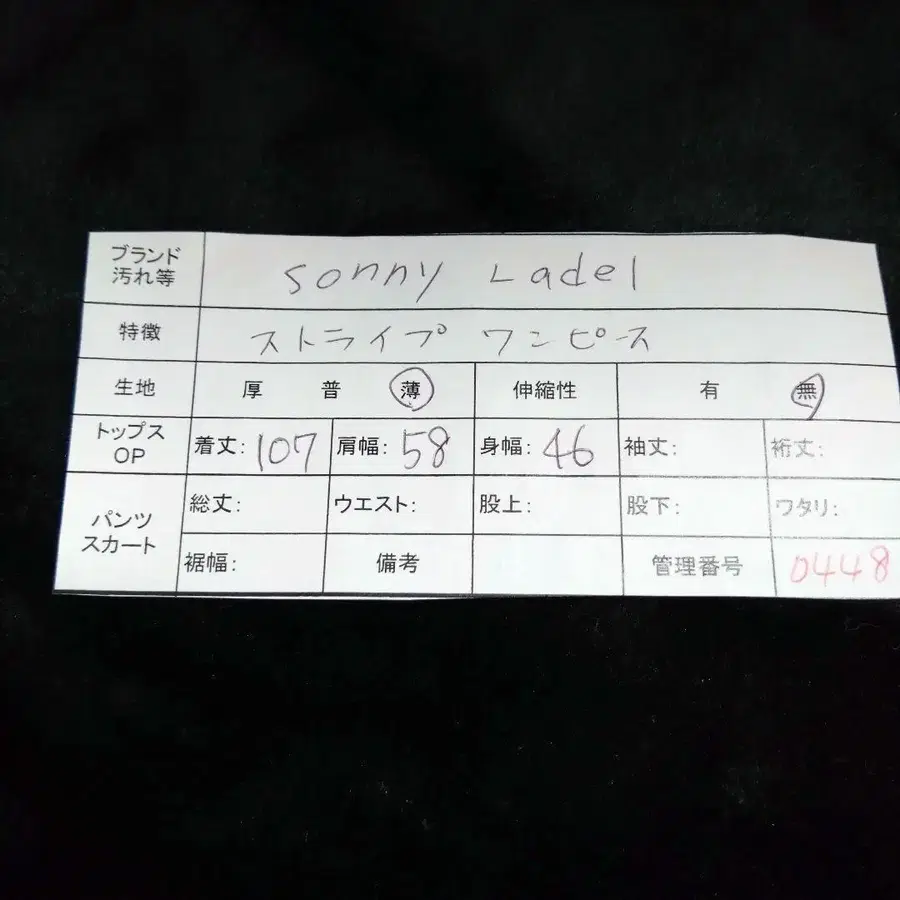 ブランド
汚れ等 sonny Ladel
特徴 ストライプ ワンピース
生地 厚 普 薄 伸縮性 有 無
トップス
OP 着丈: 107 肩幅: 58 身幅: 46 袖丈: 裄丈:
パンツ
スカート 総丈: ウエスト: 股上: 股下: ワタリ:
裾幅: 備考 管理番号 0448